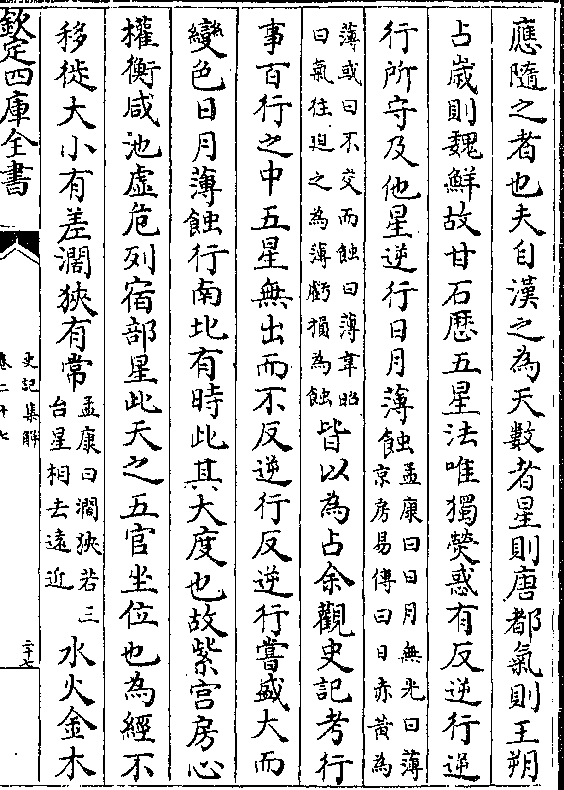 應隨之者也夫自漢之為天數者星則唐都氣則王朔
占嵗則魏鮮故甘石厯五星法唯獨熒惑有反逆行逆
行所守及他星逆行日月薄蝕
孟康曰日月無光曰薄
京房易傳曰日赤黄為
薄或曰不交而蝕曰薄韋昭
曰氣往廹之為薄虧損為蝕
皆以為占余觀史記考行
事百行之中五星無出而不反逆行反逆行嘗盛大而
變色日月薄蝕行南北有時此其大度也故紫宫房心
權衡咸池虚危列宿部星此天之五官坐位也為經不
移徙大小有差濶狹有常
孟康曰濶狹若三
台星相去遠近
水火金木
欽定四庫全書
史記集解
卷二十七
二十七